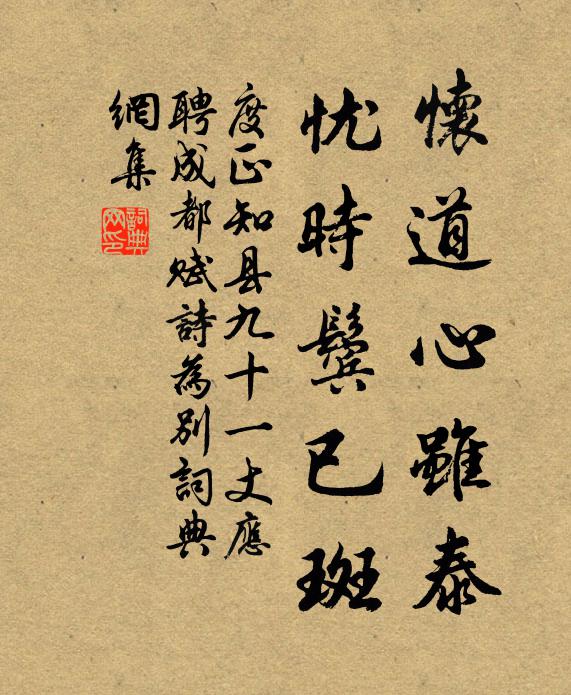 懷道心雖泰
忧時鬓已斑
度正知县九十一丈應
聘成都赋詩為别詞典
網集
詞典网印